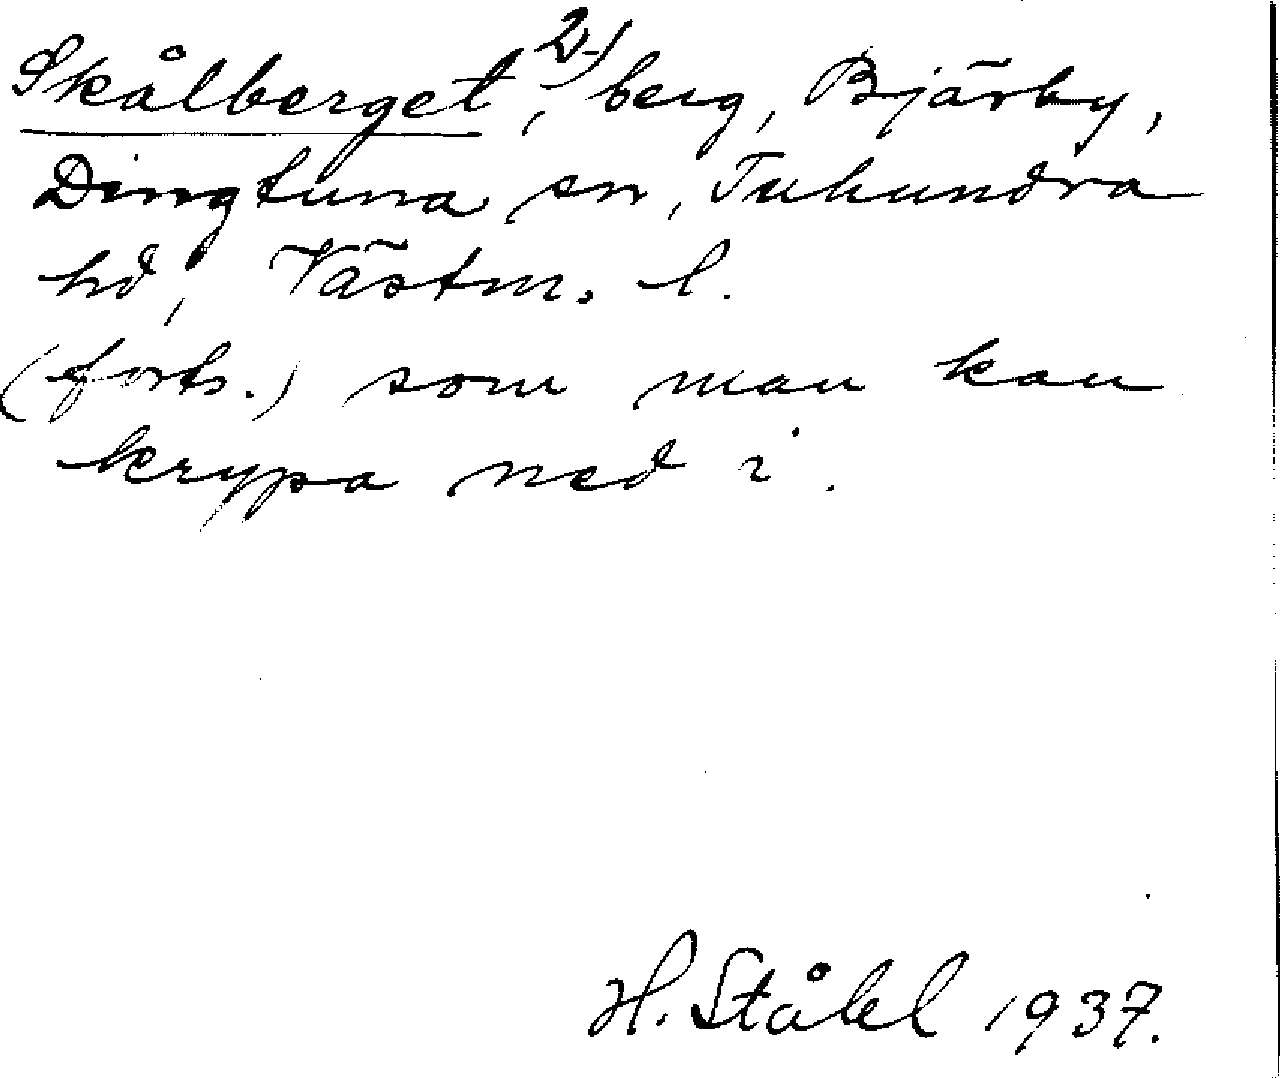 Skålberget, 2) berg, Bjärby,
Dingtuna sn, Tuhundra
hd, Västm. l.
(forts.) som man kan
krypa ned i.
H. Ståhl 1937.